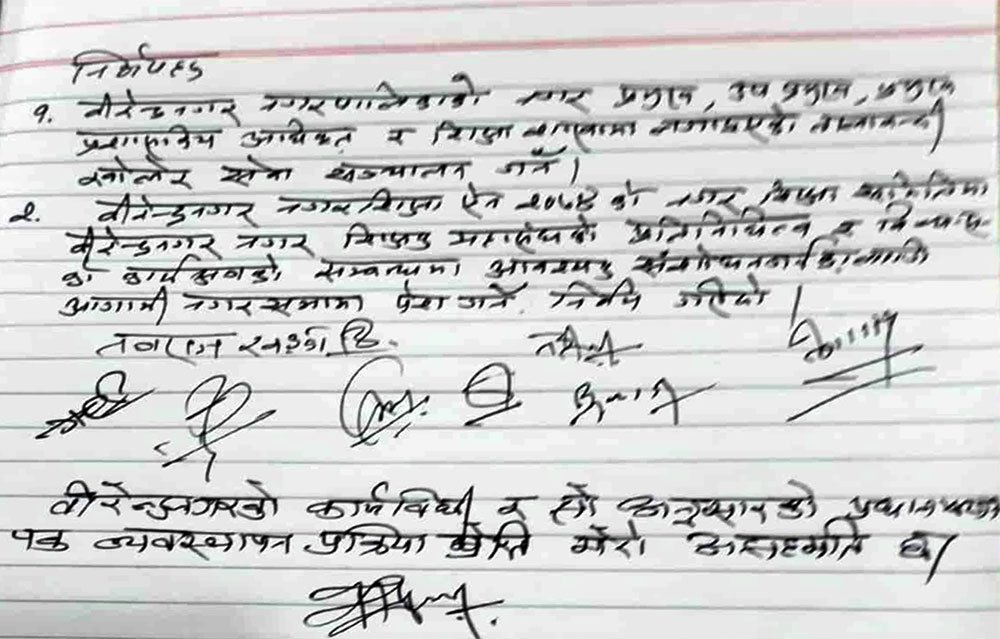 निर्णयहरु
१. वीरेन्द्रनगर नगरपालिकाको नगर प्रमुख, उप प्रमुख, प्रमुख
प्रशासकिय अधिकृत र शिक्षा शाखामा लगाइएको तालाबन्दी
खोलेर सेवा सञ्चालन गर्ने।
२. वीरेन्द्रनगर नगर शिक्षा ऐन २०७४ को नगर शिक्षा समितिमा
वीरेन्द्रनगर नगर शिक्षक महासंघको प्रतिनिधित्व र
को सम्बन्धमा आवश्यक संशोधन लागि
आगामी नगरसभामा पेश गर्ने निर्णय गरियो।
वीरेन्द्रनगरको कार्यविधी र सो अनुसारको प्रधानाध्या
पक व्यवस्थापन प्रक्रिया प्रति मेरो असहमति छ।